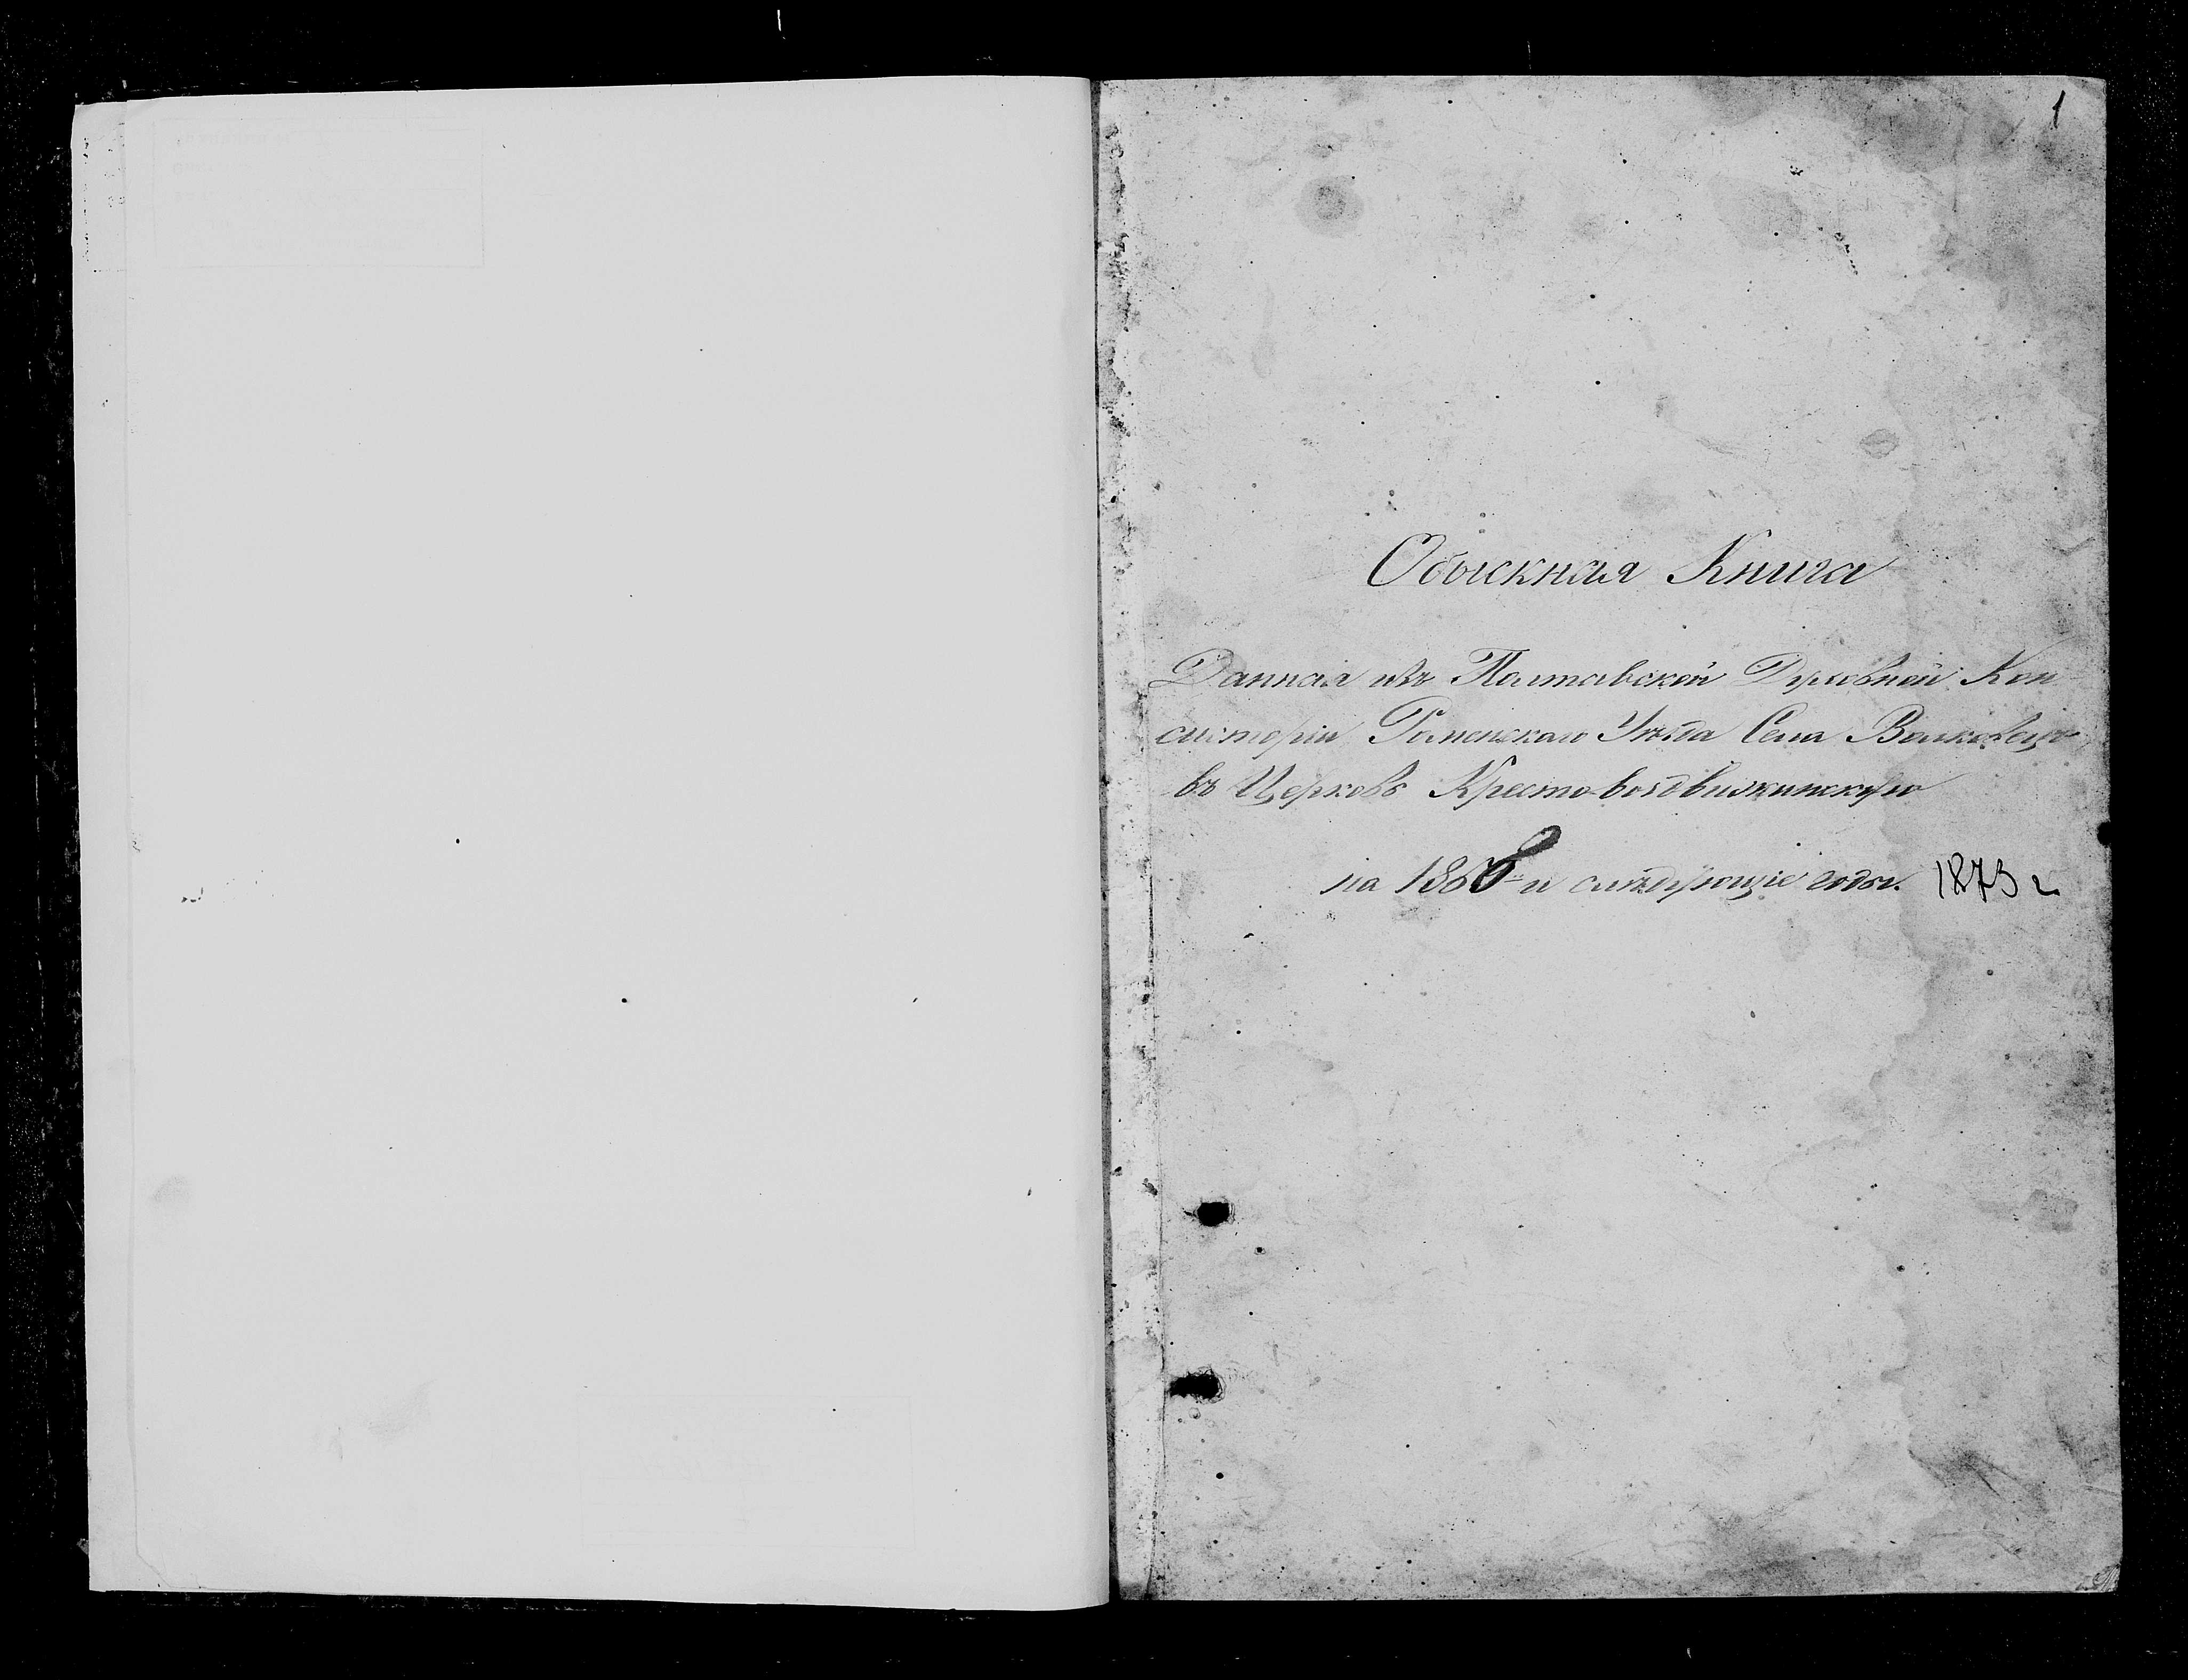 1
Обыскная Книга
Данная изъ Полтавской Духовной Кон
систоріи Роменскаго Уѣзда Села Волковецъ
въ Церковь Кресто-воздвиженскую
на 1868 и слѣдующіе годы. 1873 г